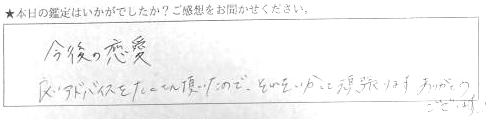 ★本日の鑑定はいかがでしたか？ご感想をお聞かせください。
今後の恋愛
良いアドバイスをたくさん頂いたので、それをいかして頑張ります ありがとう
ございます。